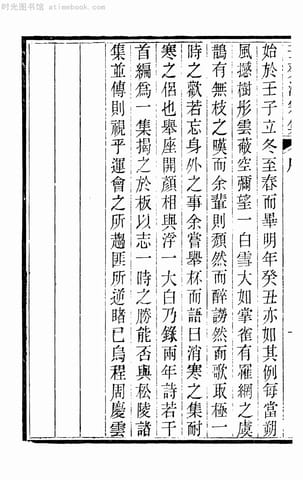 时光图书馆 - atimebook.com
始於壬子立冬至春而畢明年癸丑亦如其例每當朔
風撼樹彤雲蔽空彌望一白雪大如掌雀有羅網之虞
鵲有無枝之嘆而余輩則頹然而醉謣然而歌取極一
時之歡若忘身外之事余嘗舉杯而語曰消寒之集耐
寒之侶也舉座開顏相與浮一大白乃錄兩年詩若干
首編為一集揭之於板以志一時之勝能否與松陵諸
集並傳則視乎運會之所趨匪所逆睹已烏程周慶雲